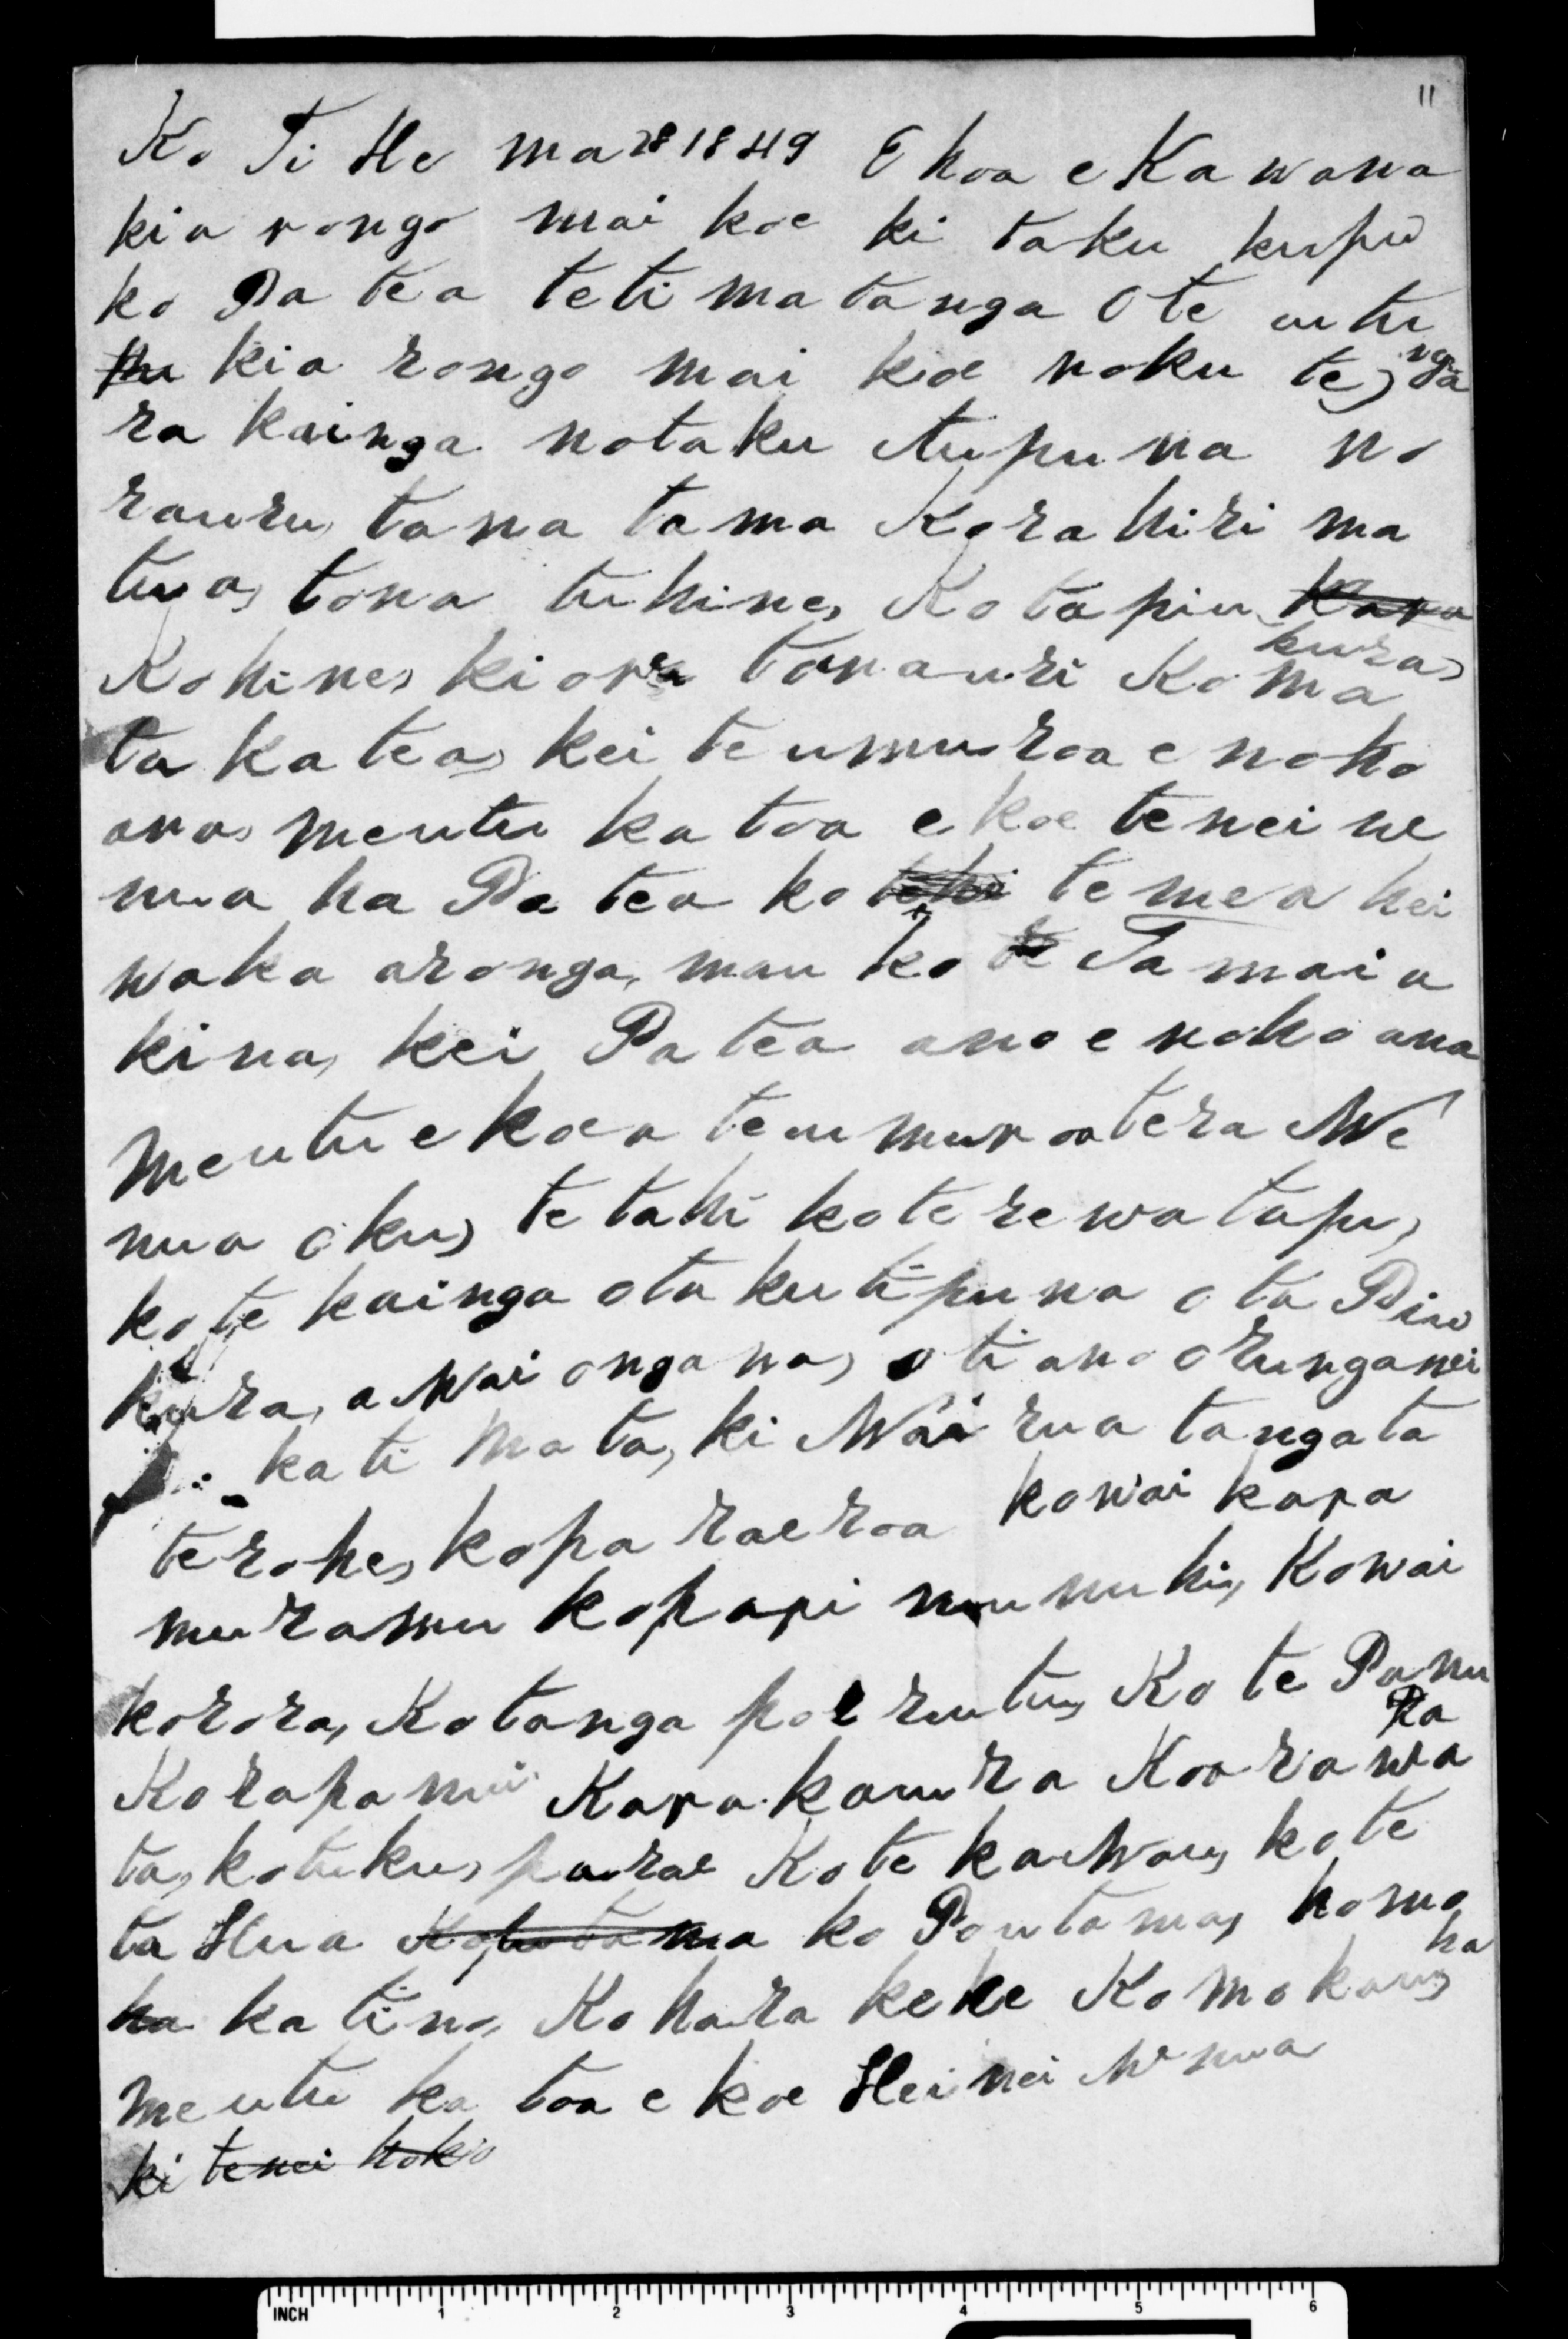 11
Ko Ti He ma 28 1849 E hoa e Kawana
kia rongo mai koe ki taku kupu
ko Patea te timatanga O te utu
kia rongo mai koe noku te, nga
ra kainga notaku tupuna no
rauru, tana tama Ko rahiri ma
tua, tona tuhine, Ko tapiu kura,
Ko hine, kiore tona uri Ko ma
ta ka tea, kei te umuroa e noho
ana, me utu ka toa e koe tenei we
nua ha Pa tea ko te mea hei
waka aronga, mau ko Ta mai a
kina, kei Pa tea ano e noho ana
me utu e koe a te umuroa tera We
nua oku, te tahi ko te rewa tapu,
ko te kainga o ta ku tipuna o ta Piu
kura, a Wai ongana, o ti ano o runga nei
ka ti Ma ta, ki Wai rua tangata
te rohe, ko para e roa ko wai kara
mu ramu ko papi nu nuhi, Ko wai
korora, Ko tanga poe rutu, Ko te Panu
Ko rapa nui Kara ka ura Ko o rawa
ta, ko tuku, pa rae Ko te ka Wau, ko te
ta Hua ko Pou ta ma, ko mo
ha ka tino, Ko hara ke ke Ko mo kau,
me utu ka toa e koe Hei nei We nua
ki tenei hoki
INCH 1 2 3 4 5 6